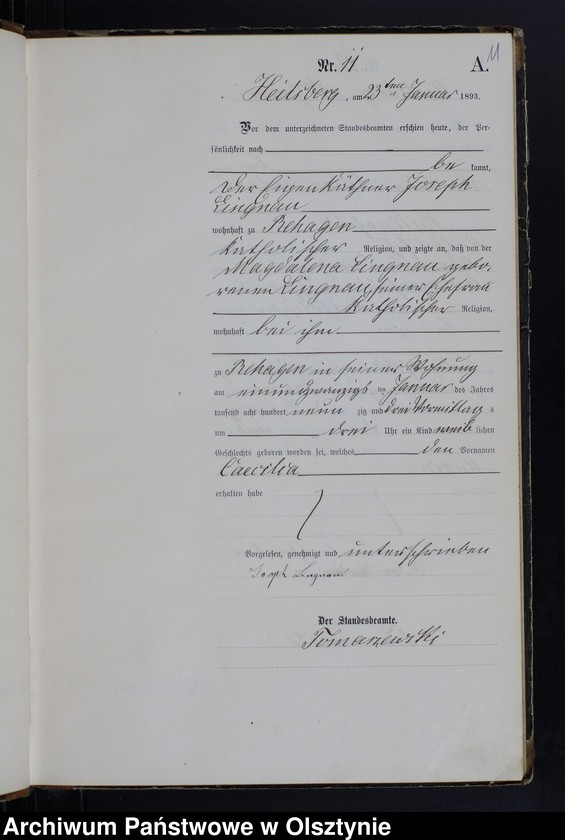 11
Nr. 11 A.
Heilsberg, am 23ten Januar 1893.
Vor dem unterzeichneten Standesbeamten erschien heute, der Per-
sönlichkeit nach
be kannt,
der Eigenkäthner Joseph
Lingnau
wohnhaft zu Rehagen
katholischer Religion, und zeigte an, daß von der
Magdalena Lingnau gebo-
renen Lingnau, seiner Ehefrau
katholischer Religion,
wohnhaft bei ihm
zu Rehagen in seiner Wohnung
am einundzwanzigsten Januar des Jahres
tausend acht hundert neun zig und drei Vormittags
um drei Uhr ein Kind weib lichen
Geschlechts geboren worden sei, welches den Vornamen
Caecilia
erhalten habe
Vorgelesen, genehmigt und unterschrieben
Joseph Lingnau
Der Standesbeamte.
Tomaszewski
Archiwum Państwowe w Olsztynie